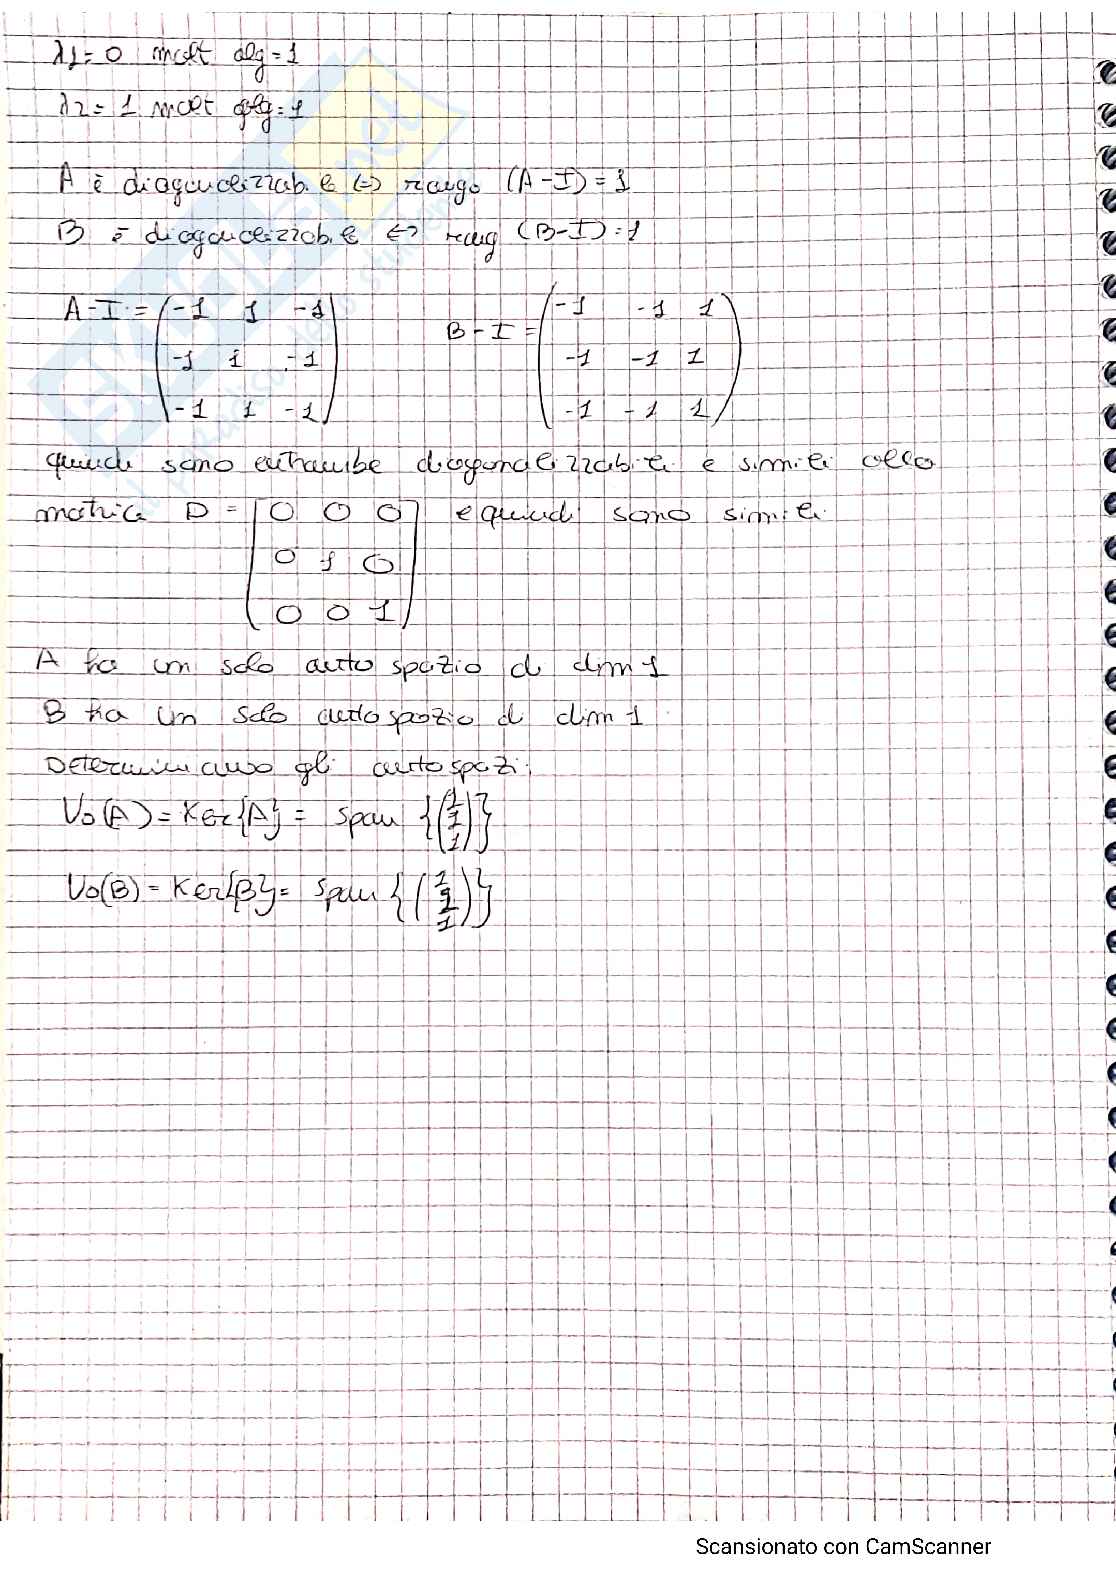 λ1 = 0 molt alg = 1
λ2 = 1 molt alg = 1
A è diagonalizzabile ⇔ rango (A-I) = 1
B è diagonalizzabile ⇔ rang (B-I) = 1
A-I = (-1 1 -1
-1 1 -1
-1 1 -1)
B-I = (-1 -1 1
-1 -1 1
-1 -1 1)
quindi sono entrambe diagonalizzabili e simili alla
matrice D = [0 0 0 e quindi sono simili
0 1 0
0 0 1]
A ha un solo autospazio di dim 1
B ha un solo autospazio di dim 1
Determiniamo gli autospazi:
V0(A) = Ker{A} = span {(1 1 1)}
V0(B) = Ker{B} = span {(1 1 1)}
Scansionato con CamScanner